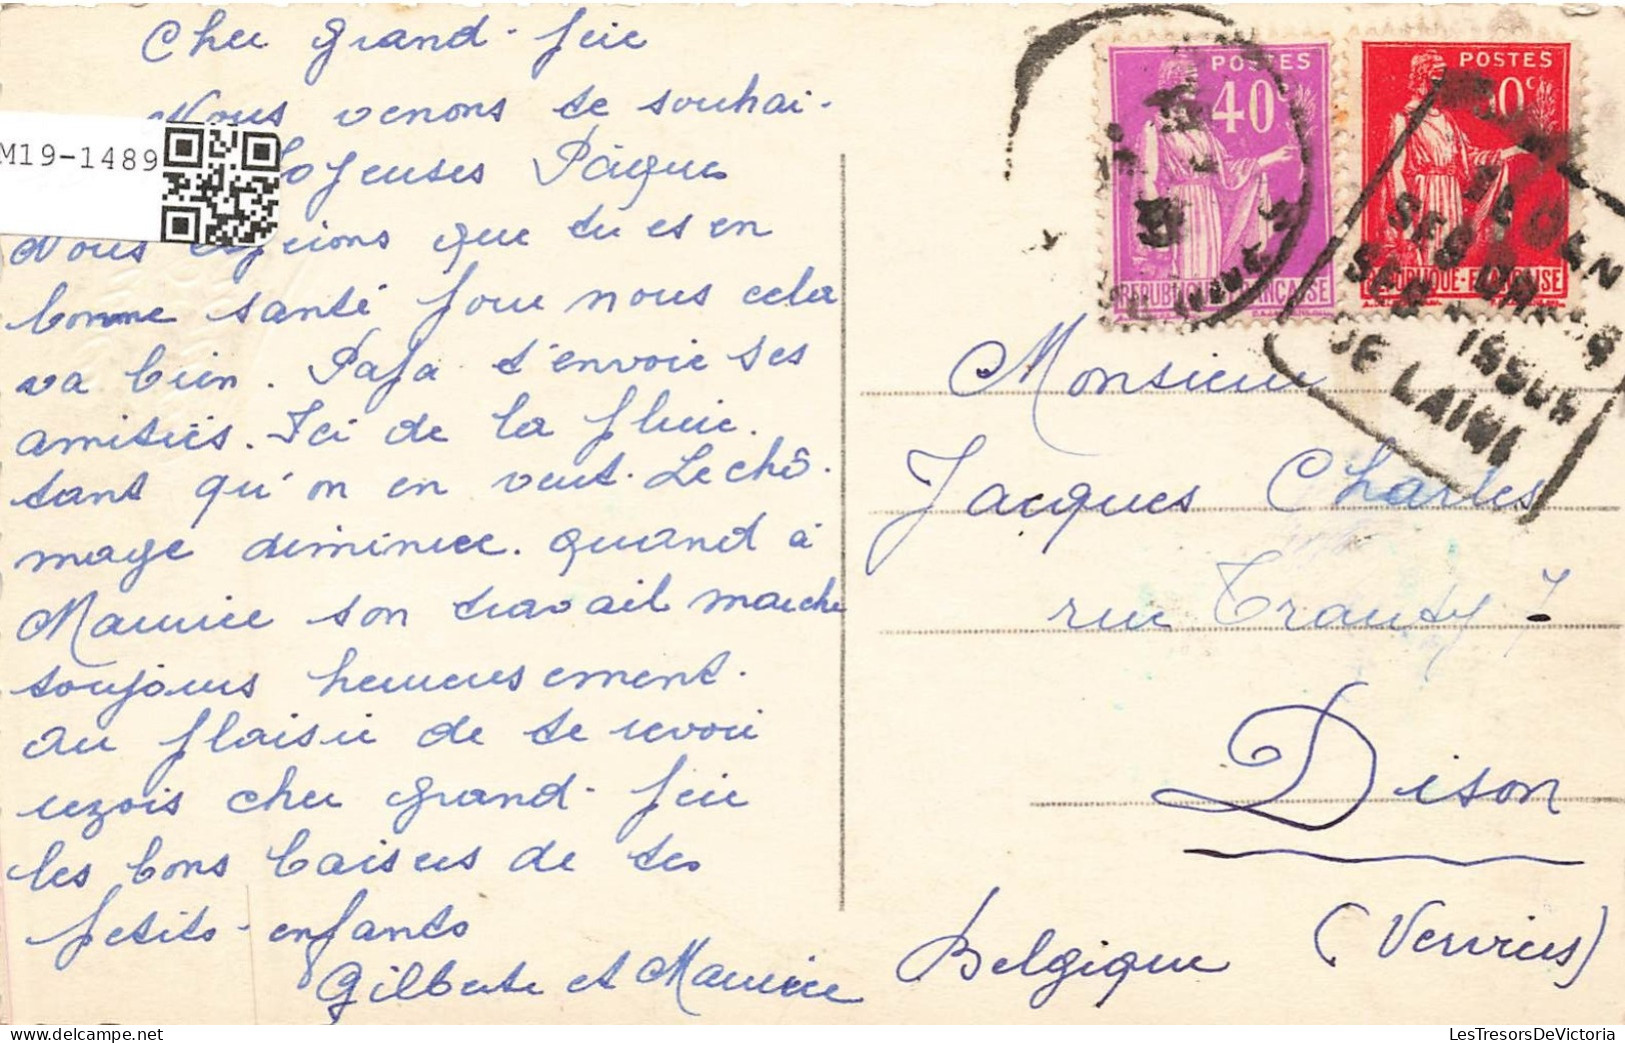 Cher grand-père
Nous venons te souhai-
Joyeuses Pâques
Nous espérons que tu es en
bonne santé pour nous cela
va bien. Papa t'envoie ses
amitiés. Ici de la pluie.
tant qu'on en veut. Le chô-
mage diminue. Quand à
Maurice son travail marche
toujours heureusement.
Au plaisir de te revoir
reçois cher grand-père
les bons baisers de tes
petits-enfants
Gilberte et Maurice
M19-1489
POSTES
40c
REPUBLIQUE-FRANÇAISE
POSTES
50c
REPUBLIQUE-FRANÇAISE
SEDAN
SES DRAPS
SES TISSUS
DE LAINE
Monsieur
Jacques Charles
rue Trauty 7
Dison
(Verviers)
Belgique
LesTresorsDeVictoria